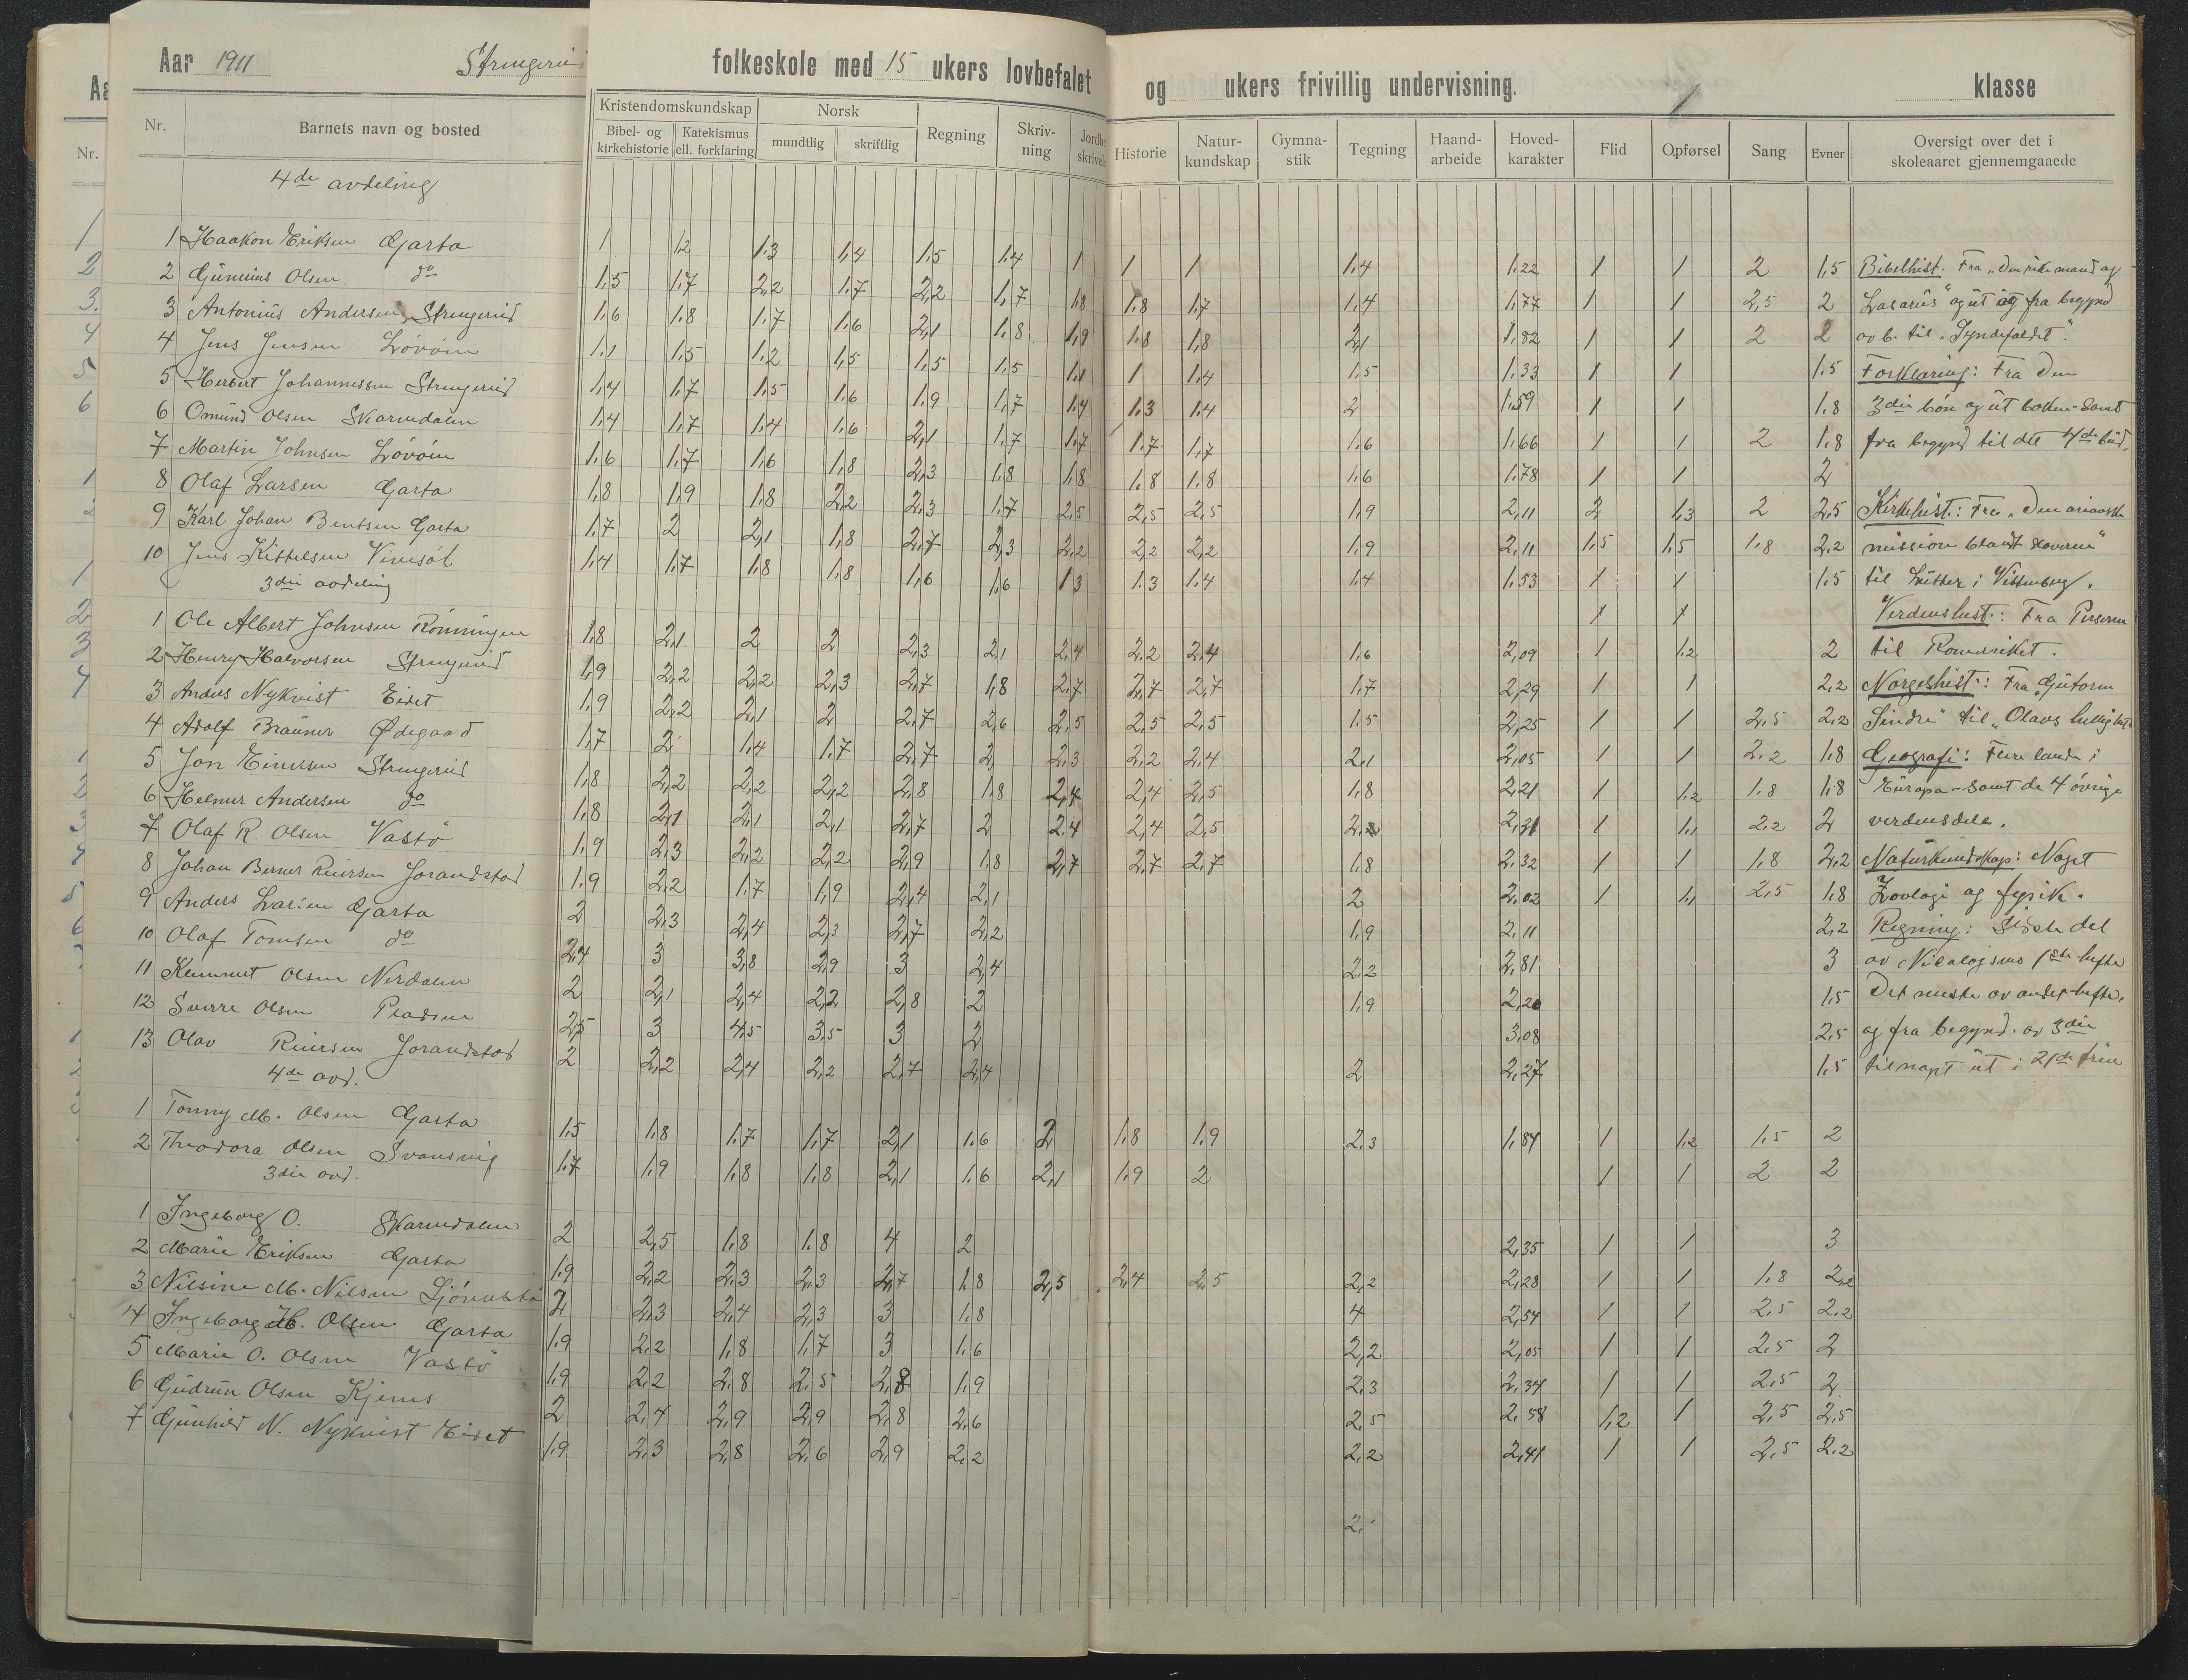 Aar 1911 folkeskole med 15 ukers lovbefalet og ukers frivillig undervisning. klasse
Nr. Barnets navn og bosted Kristendomskundskap Norsk Regning Skriv-ning Historie Natur-kundskap Gymna-stik Tegning Haand-arbeide Hoved-karakter Flid Opførsel Sang Evner Oversigt over det i skoleaaret gjennemgaaede
Bibel- og kirkehistorie Katekismus ell. forklaring mundtlig skriftlig
4de avdeling
1 Haakon Eriksen Garta 1 1,2 1,3 1,4 1,5 1,4 1 1 1 1,4 1,22 1 1 2 1,5
2 Gunnius Olsen do 1,5 1,7 2,2 1,7 2,2 1,7 1,8 1,8 1,7 1,4 1,77 1 1 2,5 2
3 Antonius Andersen Strengerud 1,6 1,8 1,7 1,6 2,1 1,8 1,9 1,8 1,8 2,1 1,82 1 1 2 2
4 Jens Jensen 1,1 1,5 1,2 1,5 1,5 1,5 1,1 1 1,4 1,5 1,33 1 1 1,5
5 Herbert Johannessen Strengerud 1,4 1,7 1,5 1,6 1,9 1,7 1,4 1,3 1,4 2 1,59 1 1 1,8
6 Omund Olsen Skarvedalen 1,4 1,7 1,4 1,6 2,1 1,7 1,7 1,7 1,7 1,6 1,66 1 1 2 1,8
7 Martin Johnsen 1,6 1,7 1,6 1,8 2,3 1,8 1,8 1,8 1,8 1,6 1,78 1 1 2
8 Olaf Larsen Garta 1,8 1,9 1,8 2,2 2,3 1,7 2,5 2,5 2,5 1,9 2,11 2 1,3 2 2,5
9 Karl Johan Bentsen Garta 1,7 2 2,1 1,8 2,7 2,3 2,2 2,2 2,2 1,9 2,11 1,5 1,5 1,8 2,2
10 Jens Kittelsen 1,4 1,7 1,8 1,8 1,6 1,6 1,3 1,3 1,4 1,4 1,53 1 1 1,5
3die avdeling
1 Ole Albert Johnsen Rönningen 1,8 2,1 2 2 2,3 2,1 2,4 2,2 2,4 1,6 2,09 1 1,2 2
2 Henry Halvorsen Strengerud 1,9 2,2 2,2 2,3 2,7 1,8 2,7 2,7 2,7 1,7 2,29 1 1 2,2
3 Anders Nykvist Eidet 1,9 2,2 2,1 2 2,7 2,6 2,5 2,5 2,5 1,5 2,25 1 1 2,5 2,2
4 Adolf Ødegaard 1,7 2 1,4 1,7 2,7 2 2,3 2,2 2,4 2,1 2,05 1 1 2,2 1,8
5 Jon Einersen Strengerud 1,8 2,2 2,2 2,2 2,8 1,8 2,4 2,4 2,5 1,8 2,21 1 1,2 1,8 1,8
6 Helmer Andersen do 1,8 2,1 2,1 2,1 2,7 2 2,4 2,4 2,5 1 1,1 2,2 2
7 Olaf R. Olsen Vastö 1,9 2,3 2,2 2,2 2,9 1,8 2,7 2,7 2,7 1,8 2,32 1 1 1,8 2,2
8 Johan Berner Reiersen Jorandstad 1,9 2,2 1,7 1,9 2,4 2,1 2 2,02 1 1,1 2,5 1,8
9 Anders Larsen Garta 2 2,3 2,4 2,3 2,7 2,2 1,9 2,11 2,2
10 Olaf Tomsen do 2,4 3 3,8 2,9 3 2,4 2,2 2,81 3
11 Kummut Olsen 2 2,1 2,4 2,2 2,8 2 1,9 2,20 1,5
12 Sverre Olsen 2,5 3 4,5 3,5 3 2 3,08 2,5
13 Olav Reiersen Jorandstad 2 2,2 2,4 2,2 2,7 2,4 2 2,27 1,5
4de avd.
1 Tonny M. Olsen Garta 1,5 1,8 1,7 1,7 2,1 1,6 2 1,8 1,9 2,3 1,84 1 1,2 1,5 2
2 Theodora Olsen Svansvig 1,7 1,9 1,8 1,8 2,1 1,6 2,1 1,9 2 1 1 2 2
3die avd.
1 Ingeborg O. Skarvedalen 2 2,5 1,8 1,8 4 2 2,35 1 1 3
2 Marie Eriksen Garta 1,9 2,2 2,3 2,3 2,7 1,8 2,5 2,4 2,5 2,2 2,28 1 1 1,8 2,2
3 Nilsine M. Nilsen 2 2,3 2,4 2,3 3 1,8 4 2,54 1 1 2,5 2,2
4 Ingeborg M. Olsen Garta 1,9 2,2 1,8 1,7 3 1,6 2,2 2,05 1 1 2,5 2
5 Marie O. Olsen Vastö 1,9 2,2 2,8 2,5 2,8 1,9 2,3 2,34 1 1 2,5 2
6 Gudrun Olsen Kjenes 2 2,4 2,9 2,9 2,8 2,6 2,5 2,58 1,2 1 2,5 2,5
7 Gunhild N. Nykvist Eidet 1,9 2,3 2,8 2,6 2,9 2,2 2,2 2,41 1 1 2,5 2,2
Bibelhist. Fra "Den rike mand og
Lasarus" og ut og fra begynd
av b. til "Syndefaldet".
Forklaring: Fra Den
3die bön og ut boken - samt
fra begynd til det 4de bud.
Kirkehist.: Fra "Den
mission blandt slaverne"
til Luther i Wittenberg.
Verdenshist.: Fra Perserne
til Romerriket.
Norgeshist.: Fra "Gutorm
Sindre" til "Olavs
Geografi: Flere lande i
Europa - samt de 4 övrige
verdensdele.
Naturkundskap: Noget
Zoologi og fysik.
Regning: Sidste del
av Nicolaisens 1ste hefte
Det meste av andet hefte,
og fra begynd. av 3die
til nogt ut i